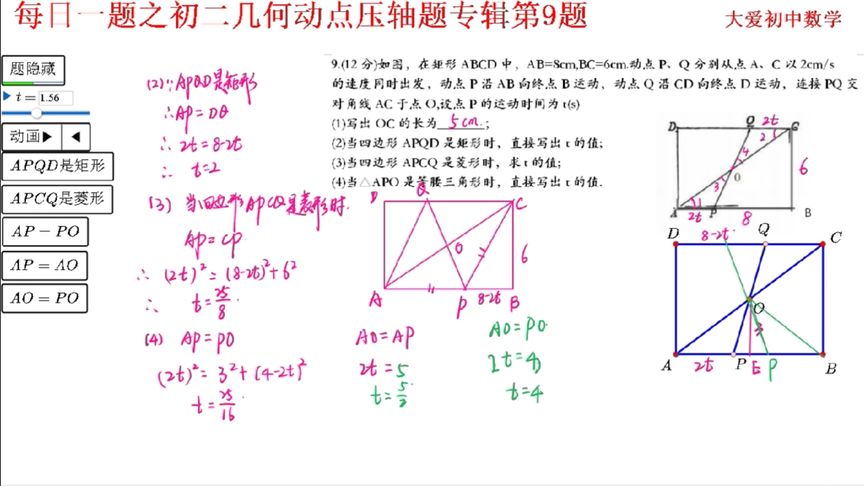 每日一题之初二几何动点压轴题专辑第9题
大爱初中数学
题隐藏
t = 1.56
动画▶ ◀
APQD是矩形
APCQ是菱形
AP=PO
AP=AO
AO=PO
9.(12分)如图，在矩形 ABCD 中，AB=8cm,BC=6cm.动点 P、Q 分别从点 A、C 以 2cm/s
的速度同时出发，动点 P 沿 AB 向终点 B 运动，动点 Q 沿 CD 向终点 D 运动，连接 PQ 交
对角线 AC 于点 O,设点 P 的运动时间为 t(s)
(1)写出 OC 的长为 5cm ;
(2)当四边形 APQD 是矩形时，直接写出 t 的值;
(3)当四边形 APCQ 是菱形时，求 t 的值;
(4)当△APO 是等腰三角形时，直接写出 t 的值.
(2)∵APQD是矩形
∴AP=DQ
∴2t=8-2t
∴t=2
(3) 当四边形APCQ是菱形时.
AP=CP
∴(2t)²=(8-2t)²+6²
∴t=25/8
(4) AP=PO
(2t)²=3²+(4-2t)²
t=25/16
AO=AP
2t=5
t=5/2
AO=PO
2t=8
t=4
D Q C
A P B
O
6
8-2t
D Q 2t C
2
4
O
3
6
A 1 P B
2t 8
D 8-2t Q C
O
A 2t P E P B